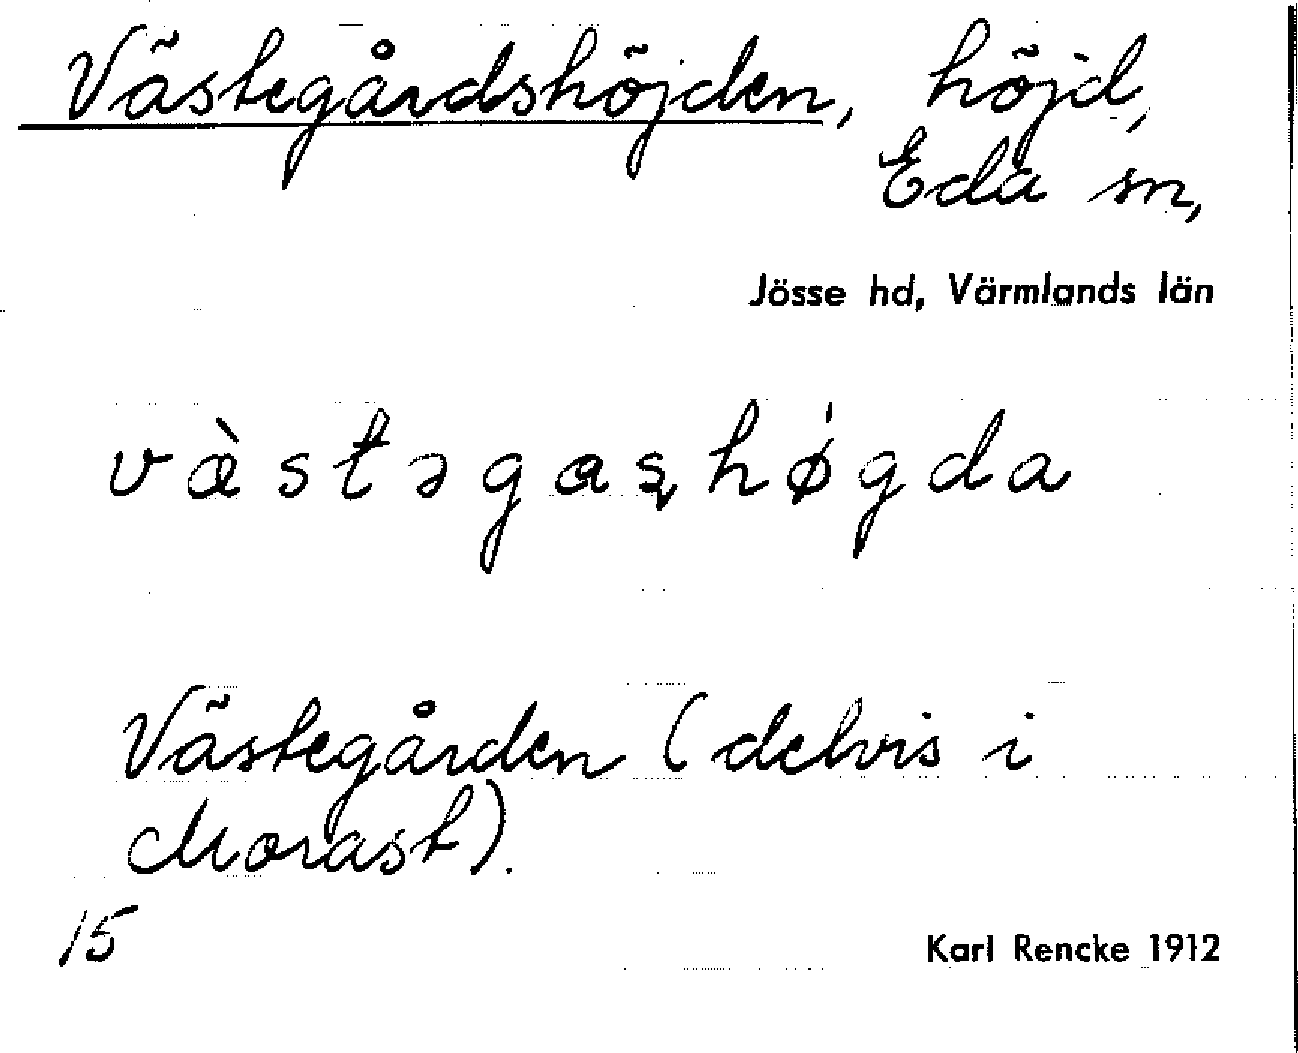 Västegårdshöjden, höjd,
Eda sn,
Jösse hd, Värmlands län
væ̀stəgaʂhǿgda
Västegården (delvis i
Morast).
15
Karl Rencke 1912